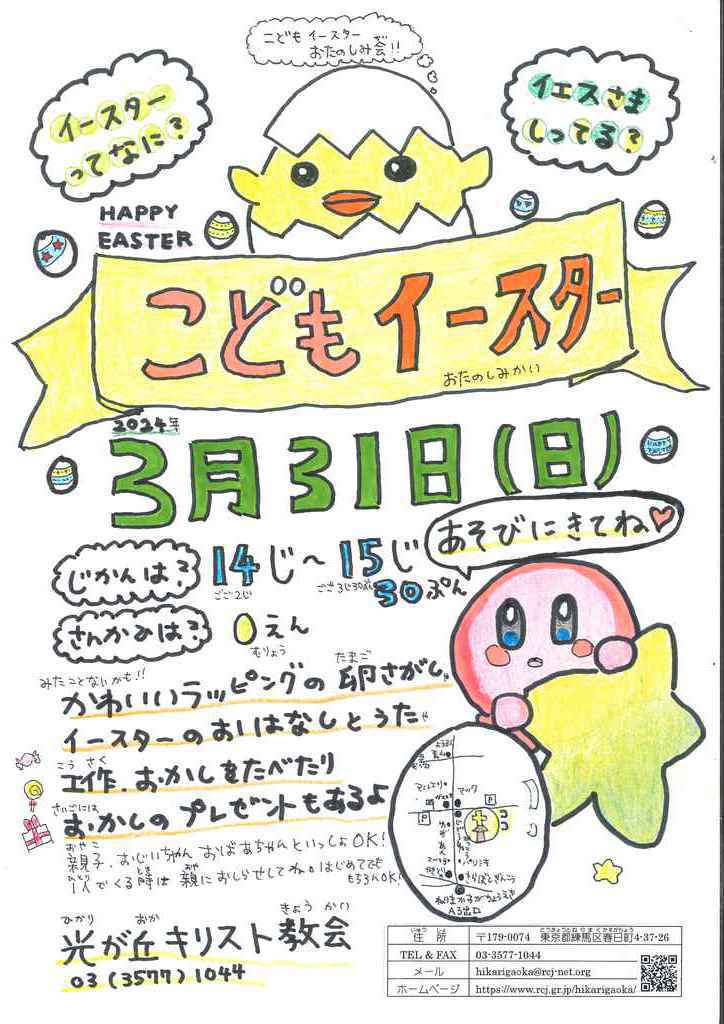 こども イースター
おたのしみ会!!
イースター
ってなに?
イエスさま
しってる?
HAPPY
EASTER
こどもイースター
おたのしみかい
2024年
3月31日(日)
あそびにきてね
じかんは?
14じ~15じ
30ぷん
ごご2じ
ごご3じ30ぷん
さんかひは?
0えん
むりょう
みたことないかも!!
たまご
かわいいラッピングの卵さがし
イースターのおはなしとうた
こうさく
工作、おかしをたべたり
さいごには
おかしのプレゼントもあるよ
おやこ
親子、おじいちゃん おばあちゃんといっしょOK!
ひとり とき おや
1人でくる時は親におしらせしてね。はじめてでも
もちろんOK!
マック
P
P
ココ
A3出口
ひかり おか きょうかい
光が丘キリスト教会
03(3577)1044
じゅう しょ
住 所
とうきょうとねりまくかすがちょう
〒179-0074 東京都練馬区春日町4-37-26
TEL & FAX 03-3577-1044
メール hikarigaoka@rcj-net.org
ホームページ https://www.rcj.gr.jp/hikarigaoka/